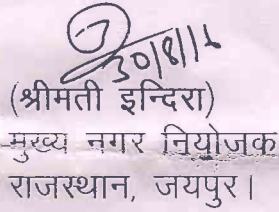 30/8/16
(श्रीमती इन्दिरा)
मुख्य नगर नियोजक
राजस्थान, जयपुर।